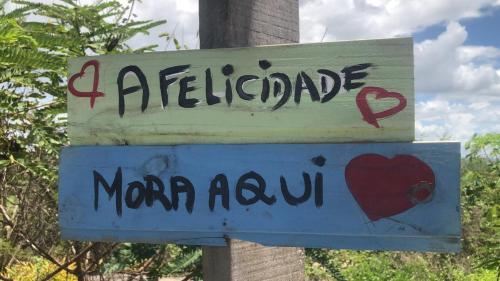 A FELiCiDADE
MORA AQUi